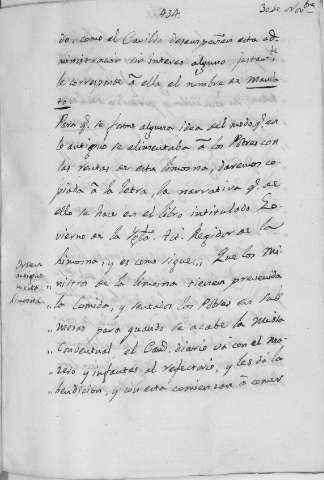 434.
30 de Novbre
do, como el Cavildo desempeñan esta ad-
ministracion sin interes alguno, justamte
le corresponde à ella el nombre de Manda-
to.
Para qe. se forme alguna idea del modo qe. en
lo antiguo se alimentaba à los Pobres con
las rentas de esta limosna, daremos co-
piada à la letra, la narrativa qe. de
ello se hace en el libro intitulado Go-
vierno de la Tit. Regidor de la
limosna, y es como sigue „ Que los Mi-
„ nistros de la limosna tienen prevenida
„ la Comida, y sentados los Pobres en sus
„ mesas para quando se acabe la Missa
„ Conventual, el diario và con el Mo-
„ zeso y infantes al refectorio, y les dà la
„ bendicion, y con esta comienzan à comer
antigua-
mente
limosna.